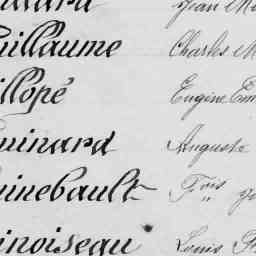 Jean M
uillaume Charles M
illopé Eugène Em
uinard Auguste
inebault Fois
"
inoiseau Louis F